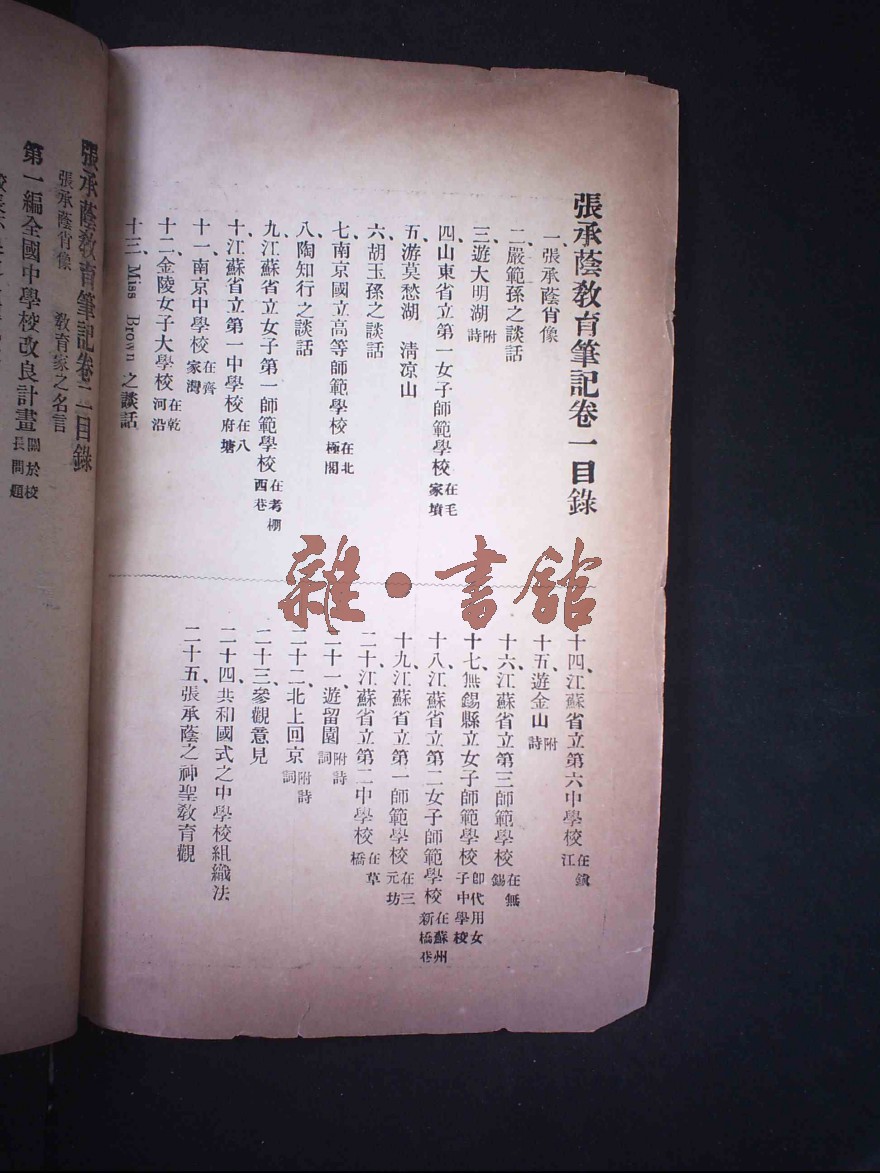 張承蔭敎育筆記卷一目錄
一、張承蔭肖像
二、嚴範孫之談話
三、遊大明湖 附詩
四、山東省立第一女子師範學校 在毛家墳
五、游莫愁湖 淸凉山
六、胡玉孫之談話
七、南京國立高等師範學校 在北極閣
八、陶知行之談話
九、江蘇省立女子第一師範學校 在考棚西巷
十、江蘇省立第一中學校 在八府塘
十一、南京中學校 在齊家灣
十二、金陵女子大學校 在乾河沿
十三、Miss Brown 之談話
十四、江蘇省立第六中學校 在鎮江
十五、遊金山 附詩
十六、江蘇省立第三師範學校 在無錫
十七、無錫縣立女子師範學校 卽代用女子中學校
十八、江蘇省立第二女子師範學校 在蘇州新橋巷
十九、江蘇省立第一師範學校 在三元坊
二十、江蘇省立第二中學校 在草橋
二十一、遊留園 附詩詞
二十二、北上回京 附詩詞
二十三、參觀意見
二十四、共和國式之中學校組織法
二十五、張承蔭之神聖敎育觀
張承蔭敎育筆記卷二目錄
張承蔭肖像 敎育家之名言
第一編全國中學校改良計畫 關於校長問題
雜·書館